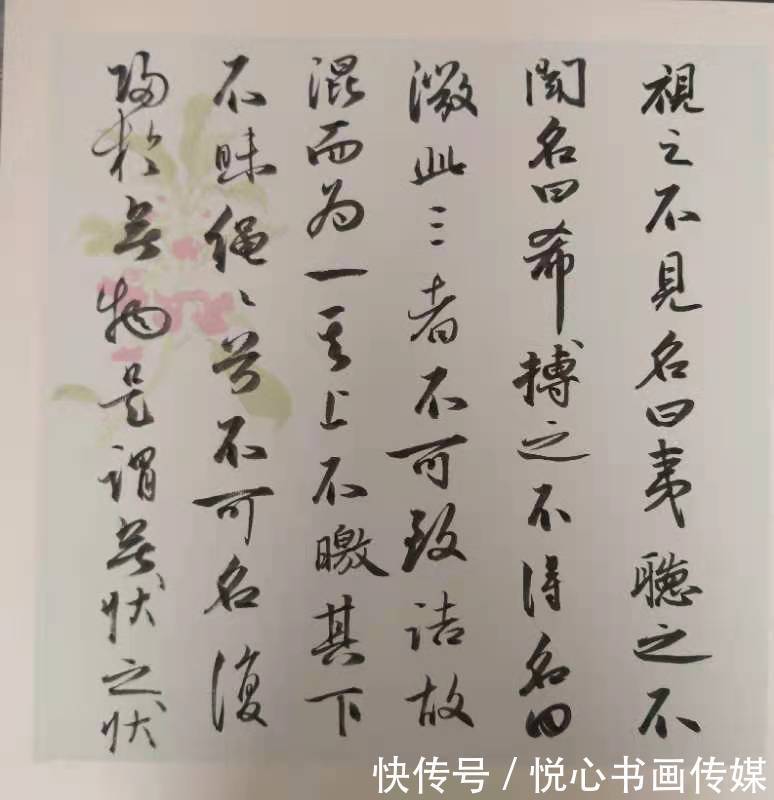 視之不見名曰夷聽之不
聞名曰希搏之不得名曰
微此三者不可致詰故
混而为一其上不皦其下
不昧繩〻兮不可名復
歸於無物是謂無狀之狀
快传号 / 悦心书画传媒